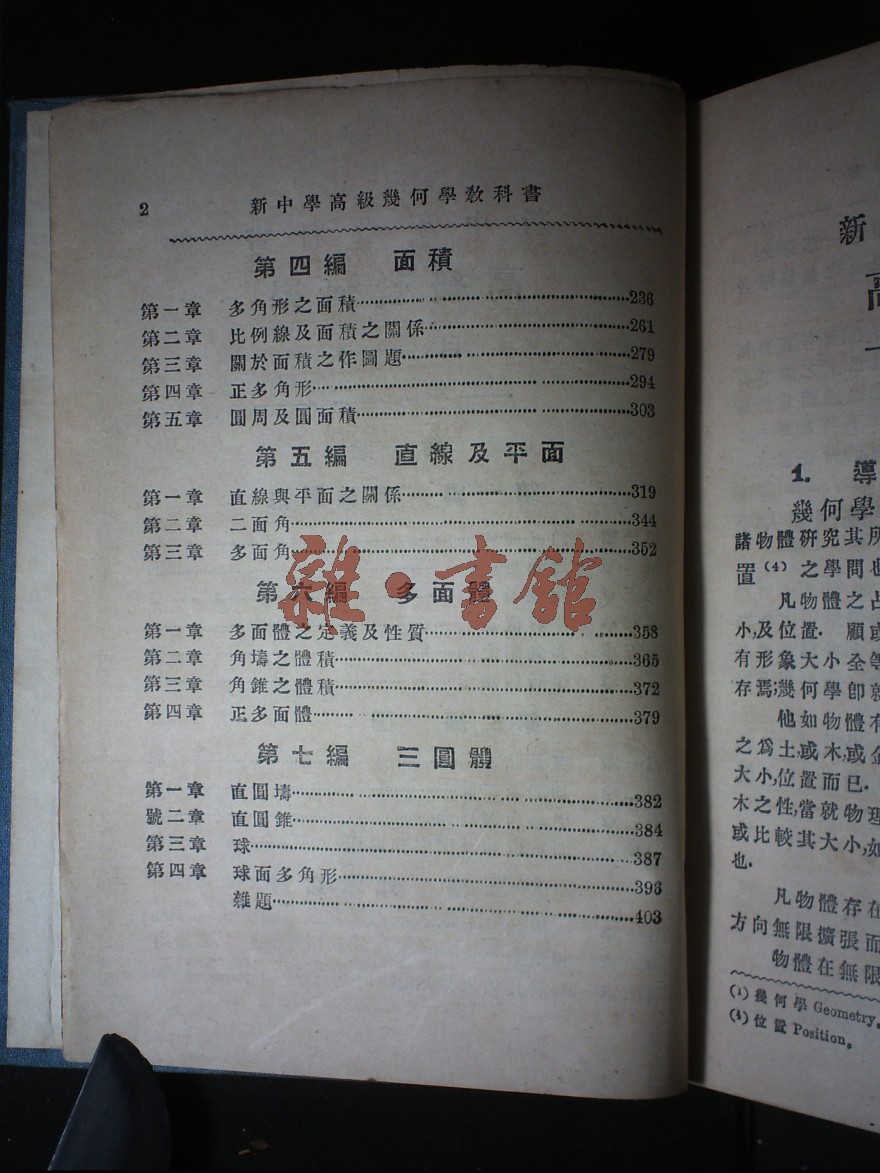 2 新中學高級幾何學教科書
第四編 面積
第一章 多角形之面積……236
第二章 比例線及面積之關係……261
第三章 關於面積之作圖題……279
第四章 正多角形……294
第五章 圓周及圓面積……303
第五編 直線及平面
第一章 直線與平面之關係……319
第二章 二面角……344
第三章 多面角……352
第六編 多面體
第一章 多面體之定義及性質……358
第二章 角壔之體積……365
第三章 角錐之體積……372
第四章 正多面體……379
第七編 三圓體
第一章 直圓壔……382
號二章 直圓錐……384
第三章 球……387
第四章 球面多角形……396
雜題……403
雜·書館
新
高
1. 導
幾何學
諸物體硏究其所
置(4) 之學問也
凡物體之占
小,及位置. 顧或
有形象大小全等
存焉;幾何學卽就
他如物體有
之爲土,或木,或金
大小,位置而已.
木之性,當就物理
或比較其大小,如
也.
凡物體存在
方向無限擴張而
物體在無限
(1) 幾何學 Geometry.
(4) 位置 Position.